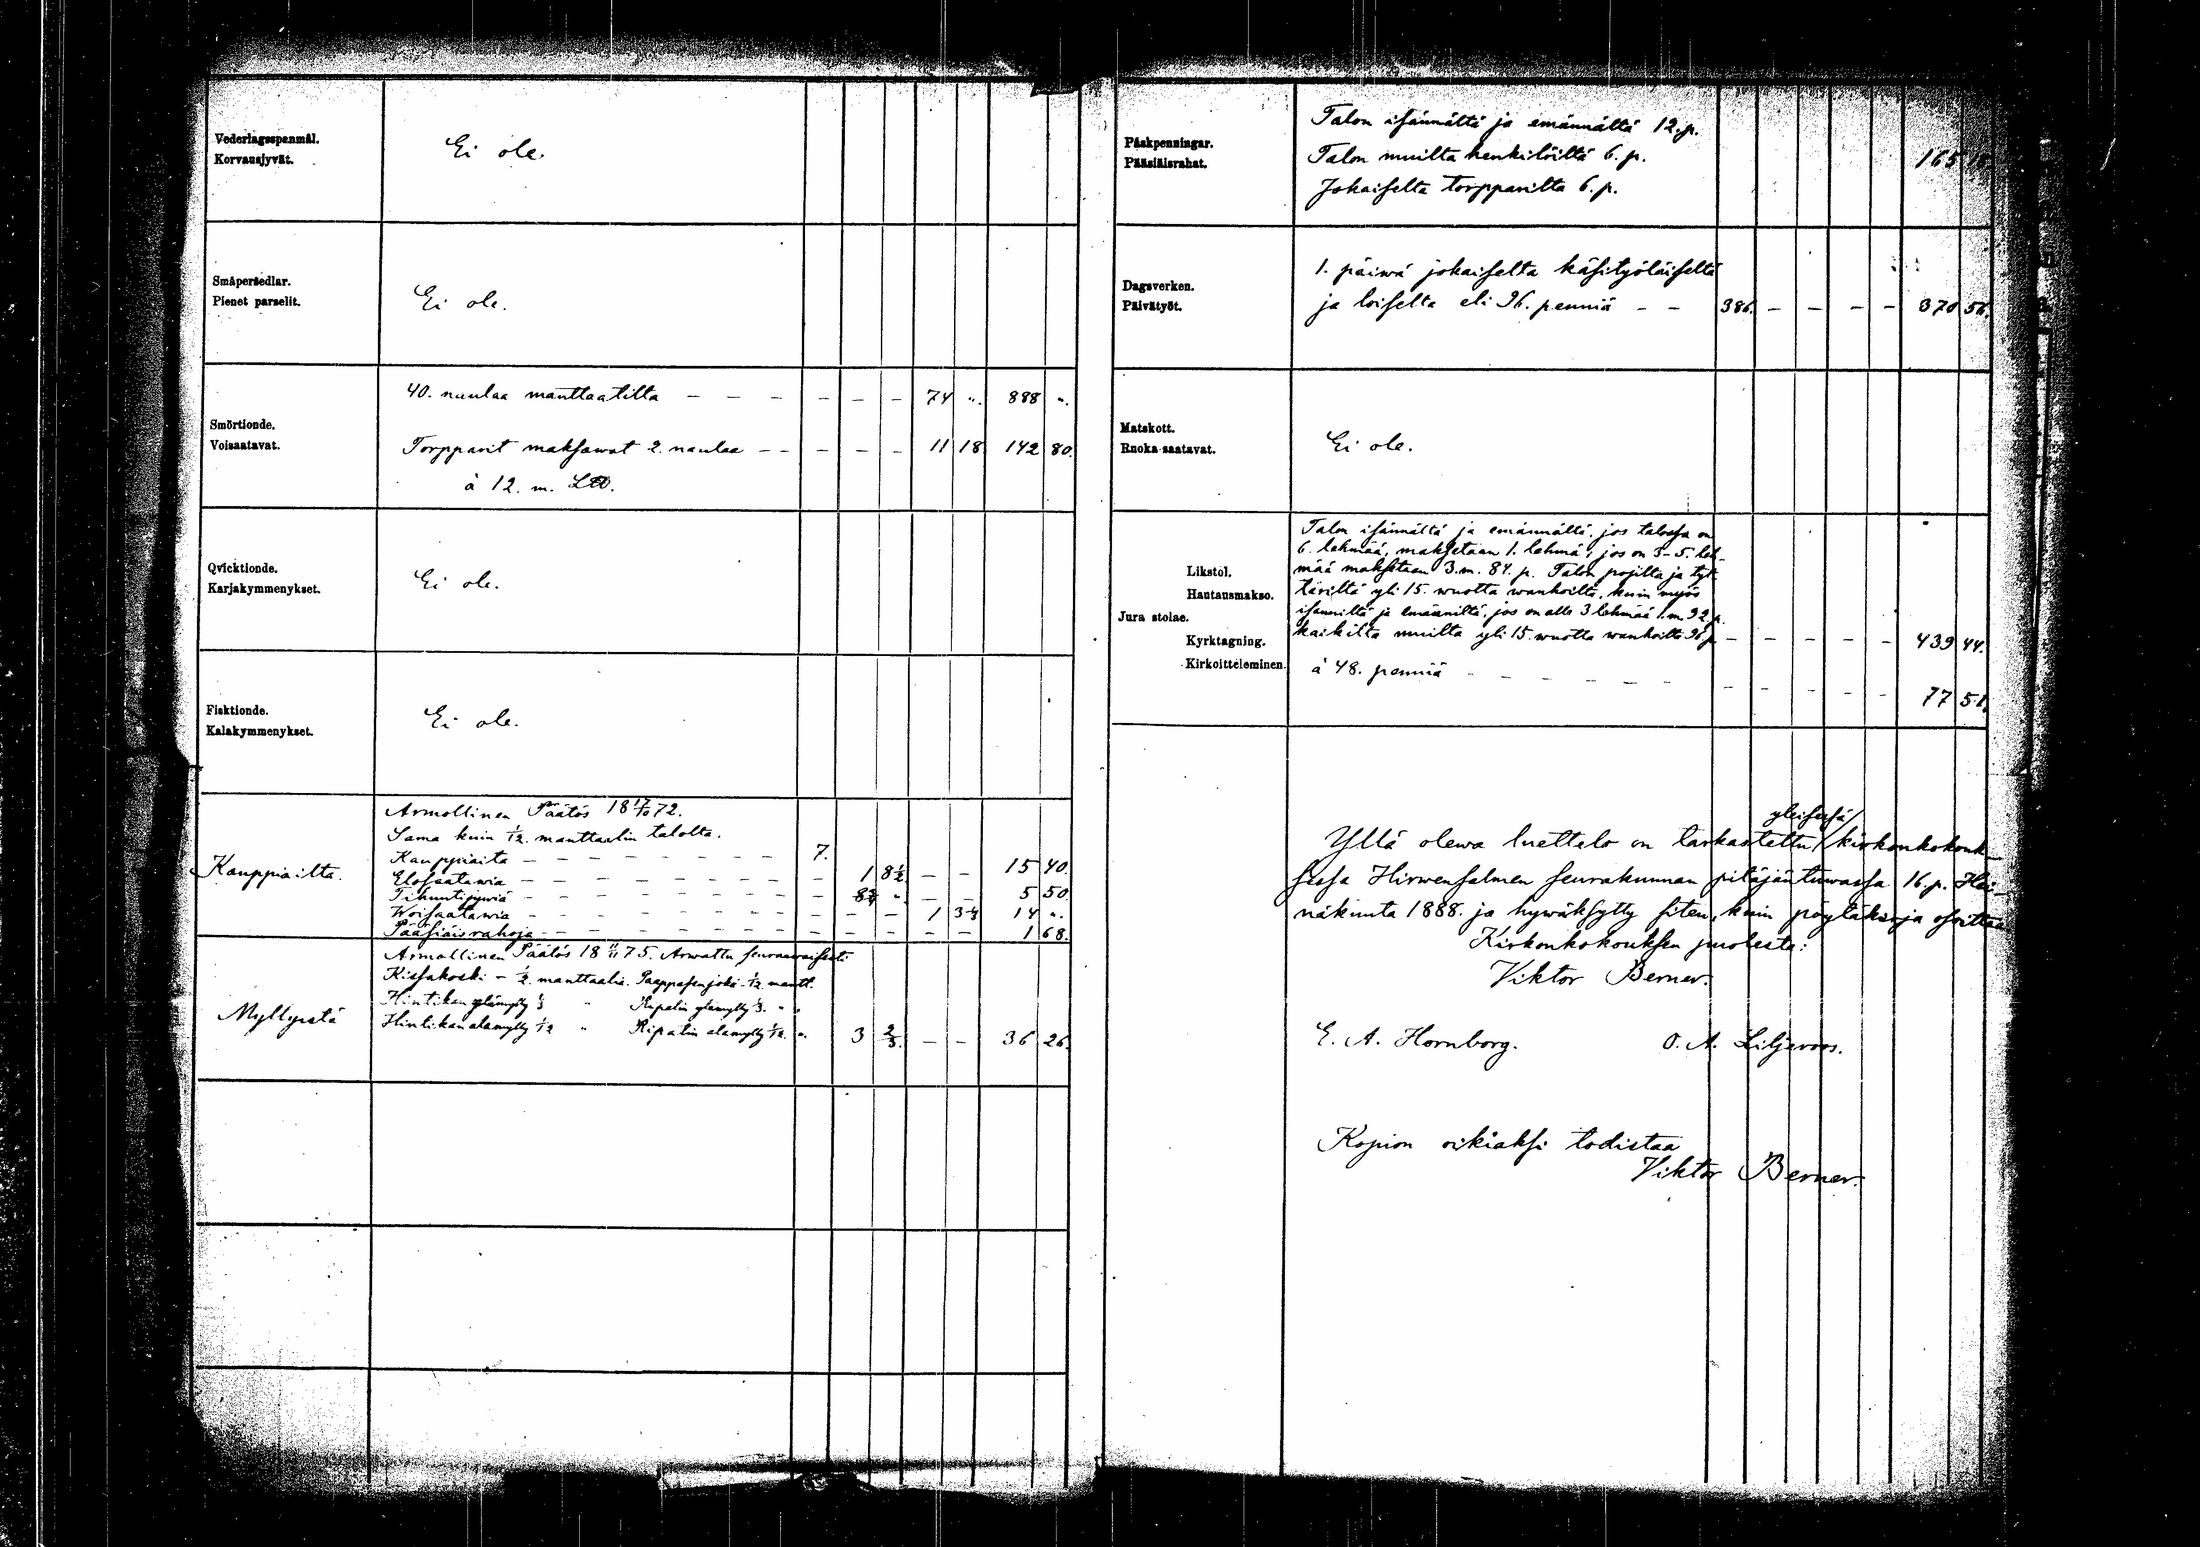 Vederlagsspanmål.
Korvausjyvät.
Ei ole.
Småpersedlar.
Pienet parselit.
Ei ole.
Smörtionde.
Voisaatavat.
40. naulaa manttaalilta — — — — — — 74 ". 888 ".
Torpparit maksawat 2. naulaa — — — — — 11 18 142 80.
à 12. m. L℔.
Qvicktionde.
Karjakymmenykset.
Ei ole.
Fisktionde.
Kalakymmenykset.
Ei ole.
Kauppiailta.
Armollinen Päätös 18 17/10 72.
Sama kuin 1/12. manttaalin talolta.
Kauppiaita — — — — — — — 7.
Elosaatawia — — — — — — — 1 8 1/2 — — 15 40.
Tihuntijywiä — — — — — — — 8 3/4 ". — — 5 50.
Woisaatawia — — — — — — — — — — 1 3 1/3 14 ".
Pääsiäisrahoja — — — — — — — — — — — — 1 68.
Myllyistä
Armollinen Päätös 18 11/11 75. Arwattu seuraawaisesti
Kissakoski — 1/2 manttaalia. Paappasenjoki — 1/12 mantt.
Hintikan ylämylly 1/3 " Ripatin ylämylly 1/3. " "
Hintikan alamylly 1/12 " Ripatin alamylly 1/12. " 3 2/3. — — 36 26.
Påskpenningar.
Pääsiäisrahat.
Talon isännältä ja emännältä 12. p.
Talon muilta henkilöiltä 6. p. 165
Jokaiselta torpparilta 6. p.
Dagsverken.
Päivätyöt.
1. päiwä jokaiselta käsityöläiseltä
ja loiselta eli 96. penniä — — 386. — — — — 370 56.
Matskott.
Ruoka-saatavat.
Ei ole.
Jura stolae.
Likstol.
Hautausmakso.
Talon isännältä ja emännältä, jos talossa on
6. lehmää, maksetaan 1. lehmä; jos on 3–5. leh-
mää maksetaan 3. m. 84. p. Talon pojilta ja tyt-
täriltä yli 15. wuotta wanhoilta, kuin myös
isänniltä ja emänniltä, jos on alle 3 lehmää 1. m 92 p.
kaikilta muilta yli 15. wuotta wanhoilta 96 p — — — — — 439 44.
Kyrktagning.
Kirkoitteleminen.
à 48. penniä — — — — — — — — — — — 77 51.
yleisessä/
Yllä olewa luettelo on tarkastettu / kirkonkokouk-
sessa Hirwensalmen seurakunnan pitäjäntuwassa 16. p. Hei-
näkuuta 1888. ja hywäksytty siten, kuin pöytäkirja osoittaa
Kirkonkokouksen puolesta:
Viktor Berner.
E. A. Hornborg. O. A. Liljeroos.
Kopion oikiaksi todistaa
Viktor Berner.